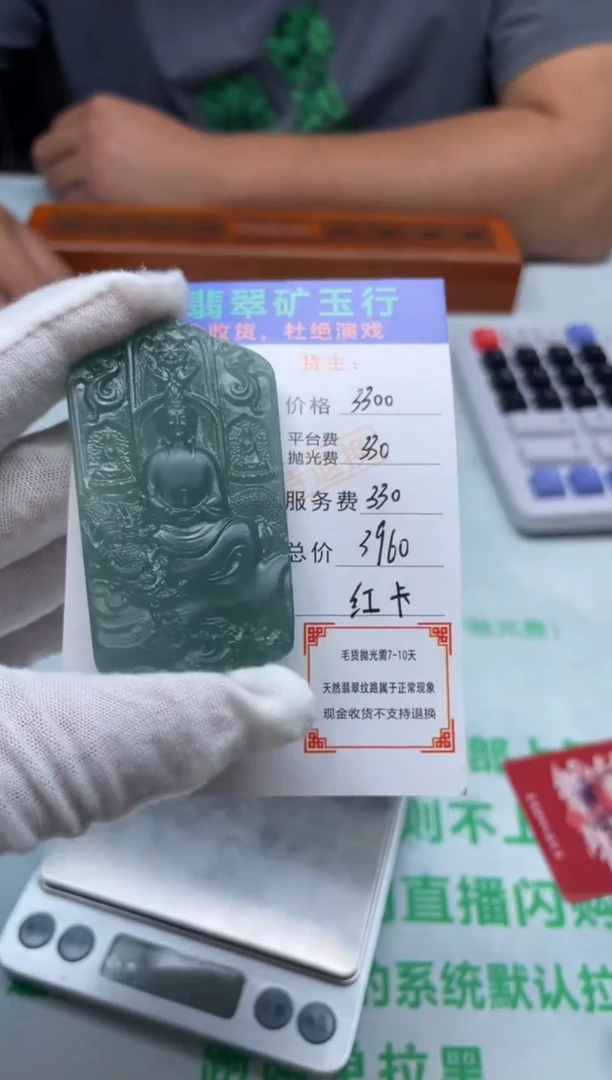 翡翠矿玉行
收货，杜绝演戏
货主：
价格 3300
平台费
抛光费 330
服务费 330
总价 3960
红卡
毛货抛光需7-10天
天然翡翠纹路属于正常现象
现金收货不支持退换
抛光费）
则不上
直播闪购
的系统默认拉
单拉黑